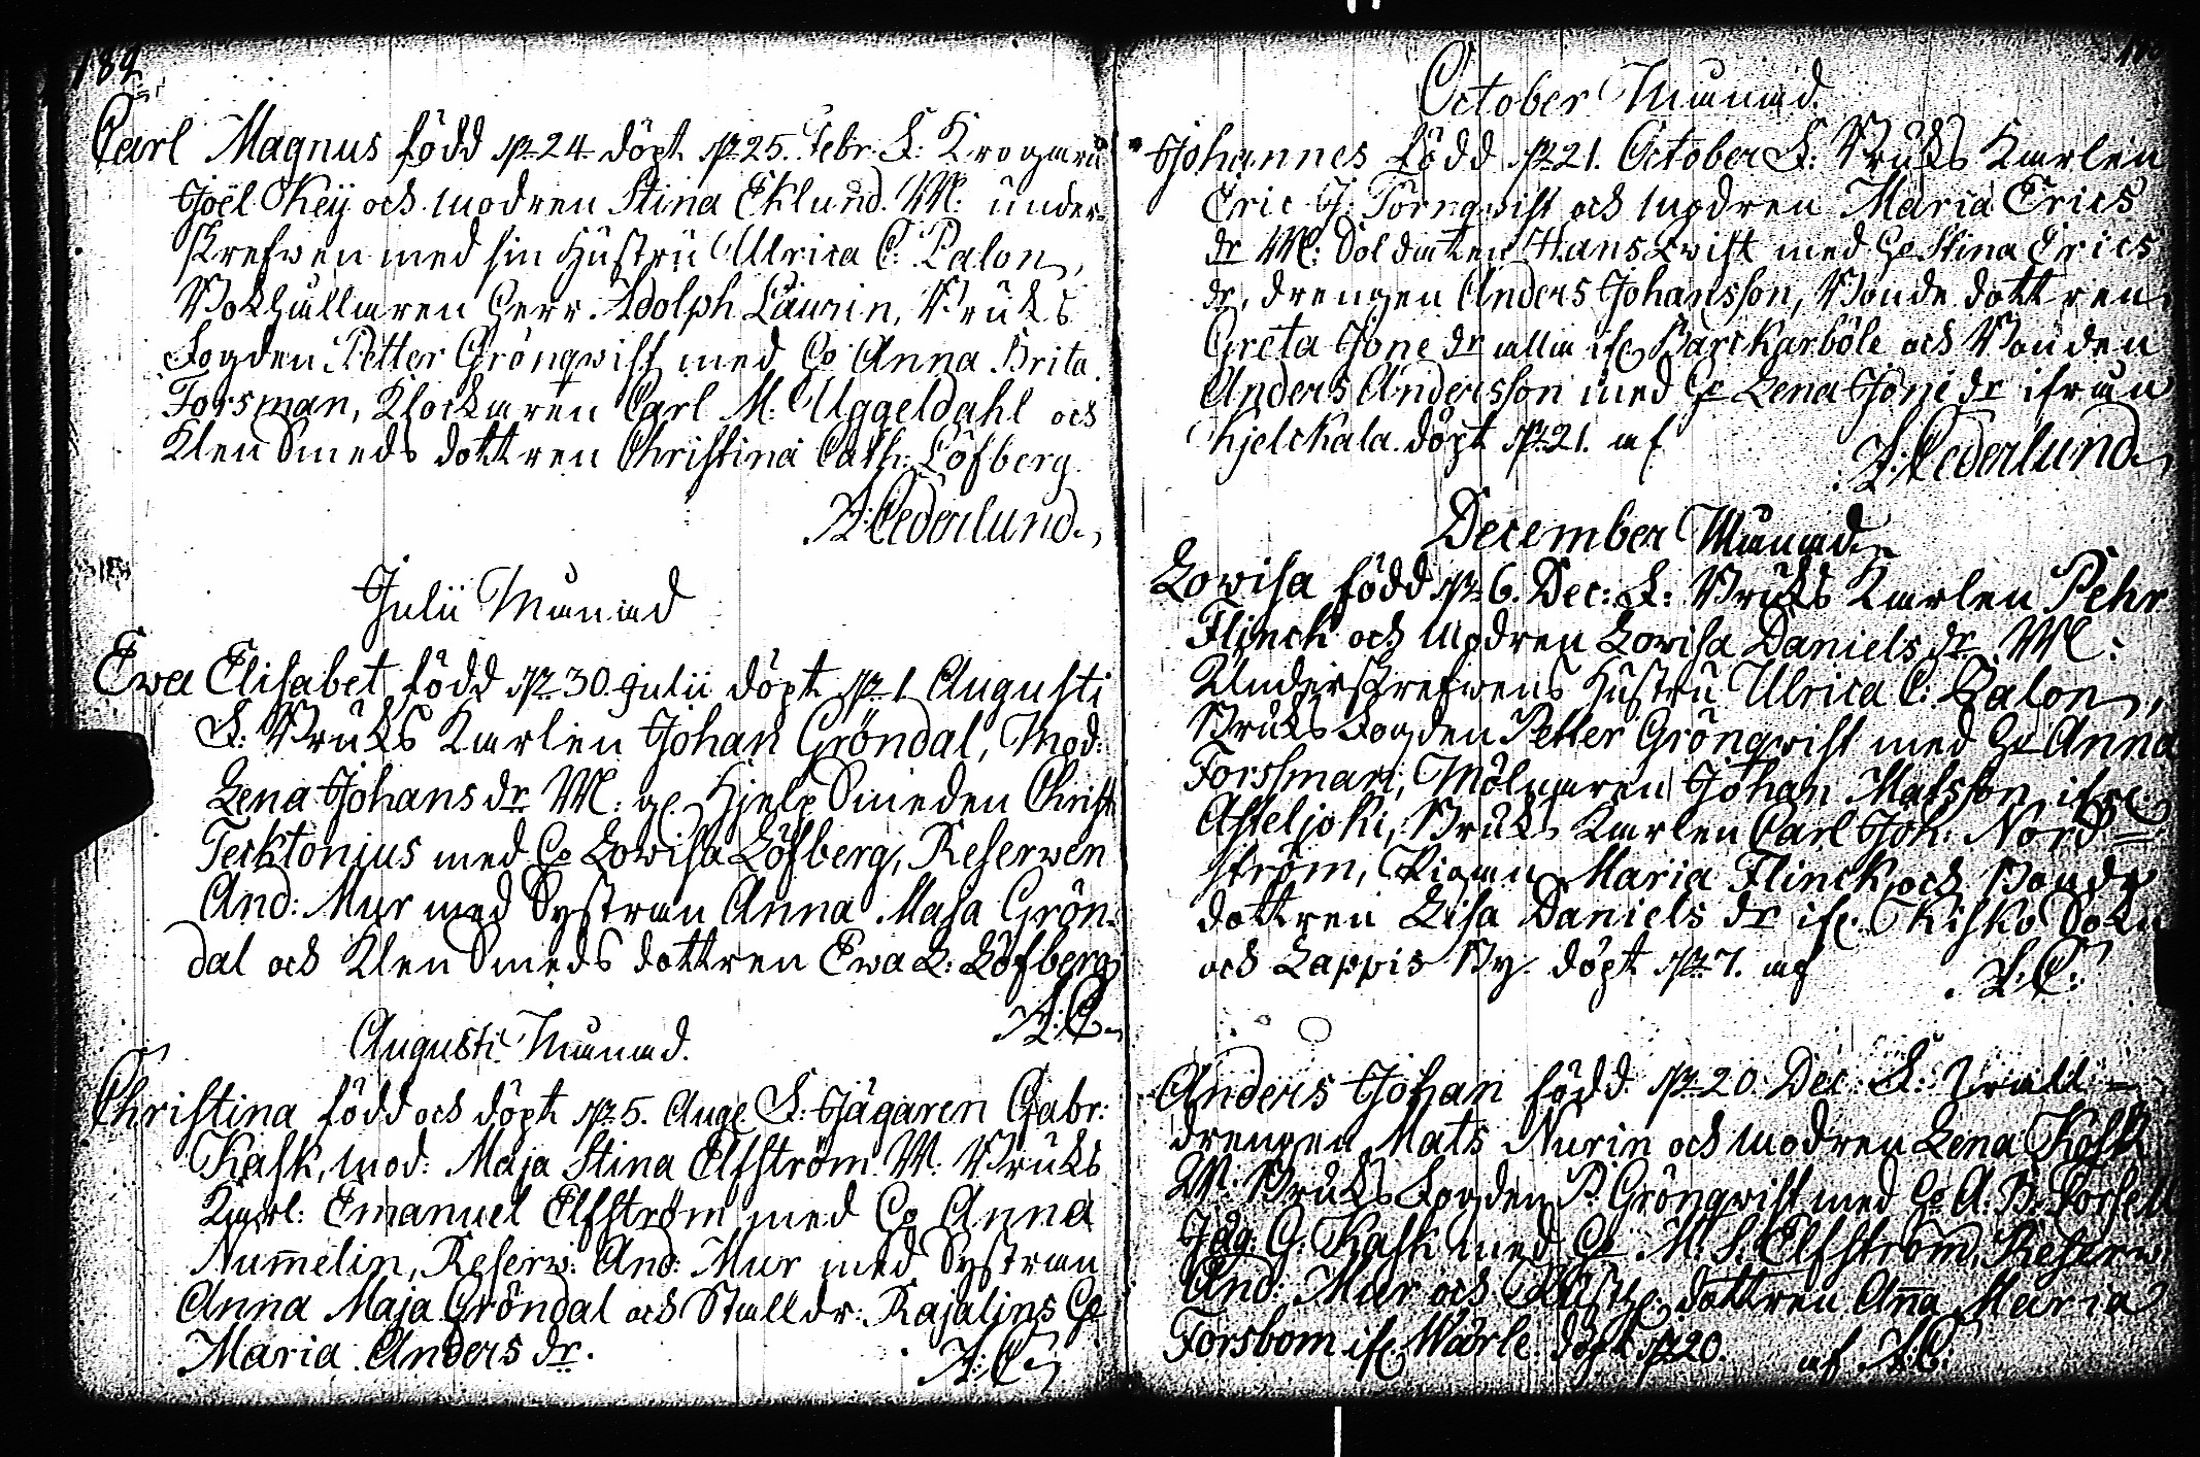 184
Carl Magnus född d. 24 döpt d. 25. Febr. F: Krogaren
Joël Keÿ och modren Stina Eklund. W: under-
skrefwen med sin Hustru Ulrica C: Palon,
Bokhållaren Herr Adolph Laurin, Bruks
Fogden Petter Grönqwist med H: Anna Brita
Forsman, Klockaren Carl M: Uggeldahl och
Klensmeds dottren Christina Cath: Löfberg.
A: Cederlund.
Julii Månad
Ewa Elisabet född d. 30 Julii döpt d. 1 Augusti
F: Bruks Karlen Johan Gröndal, Mod:
Lena Johans dr W: Hjelp Smeden Christ:
Tecktonius med H: Lowisa Löfberg, Reserwen
And: Mur med Systran Anna Maja Grön-
dal och Klen Smeds dottren Ewa L: Löfberg
A: C.
Augusti Månad.
Christina född och döpt d. 5. Aug. F: Jägaren Gabr:
Kask, mod: Maja Stina Elfström W: Bruks
Karl: Emanuel Elfström med H: Anna
Num̄elin, Reserw: And: Mur med Systran
Anna Maja Gröndal och Stalldr: Rajalins H:
Maria Anders dr.
A: C.
October Månad.
Johannes född d. 21. October F: Bruks Karlen
Eric J: Törnqwist och modren Maria Erics
dr W: Soldaten Hans Qwist med H: Stina Erics
dr, drengen Anders Johansson, Bonde dottren
Greta Jons dr alla ifr. Barckarböle och Bonden
Anders Andersson med H: Lena Jons dr ifrån
Kjelckala. döpt d. 21. af
A: Cederlund.
December Månad.
Lowisa född d. 6. Dec: F: Bruks Karlen Pehr
Flinck och modren Lowisa Daniels dr W:
Underskrefwens Hustru Ulrica C: Palon,
Bruks Fogden Petter Grönqwist med H: Anna
Forssman, Mölnaren Johan Matsson ifr.
Asteljoki, Bruks Karlen Carl Joh: Nord=
ström, Pigan Maria Flinck och Bonde
dottren Lisa Daniels dr ifr. Kisko Sokn
och Lappis By. döpt d. 7. af
A: C:
Anders Johan född d. 20. Dec: F: Stall=
drengen Mats Nurin och modren Lena Kask
W: Bruks Fogden P. Grönqwist med H: A: B: Forsell
Jäg: G: Kask med H: M: S: Elfström, Reserw:
And: Mur och dottren An̄a Maria
Forsbom ifr. Wärle. döpt d. 20. af A: C: